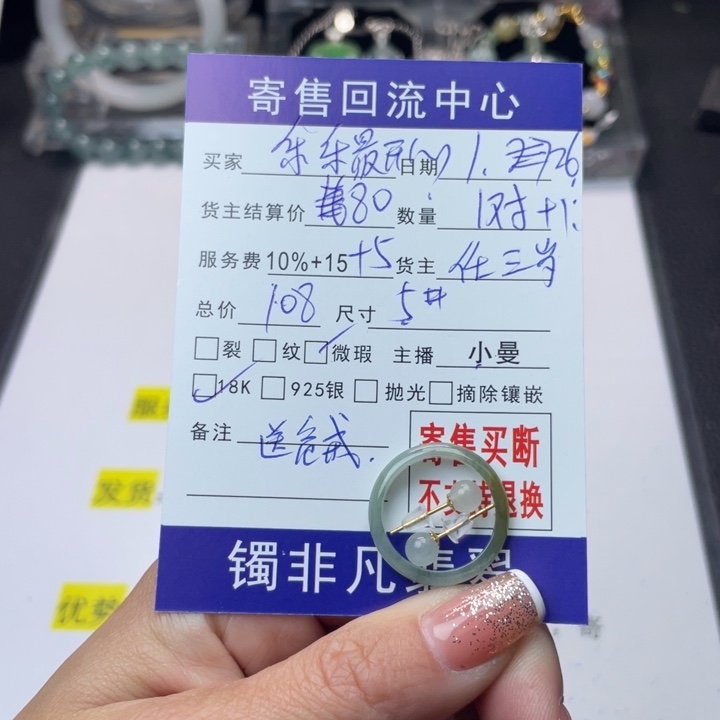 寄售回流中心
买家 乐乐最可心 日期 1.
货主结算价 80 数量 1对+1
服务费 10%+15+5 货主 任三岁
总价 108 尺寸 5#
裂 纹 微瑕 主播 小曼
18K 925银 抛光 摘除镶嵌
备注 送危戒.
寄售买断
不支持退换
镯非凡翡翠
发货
优势